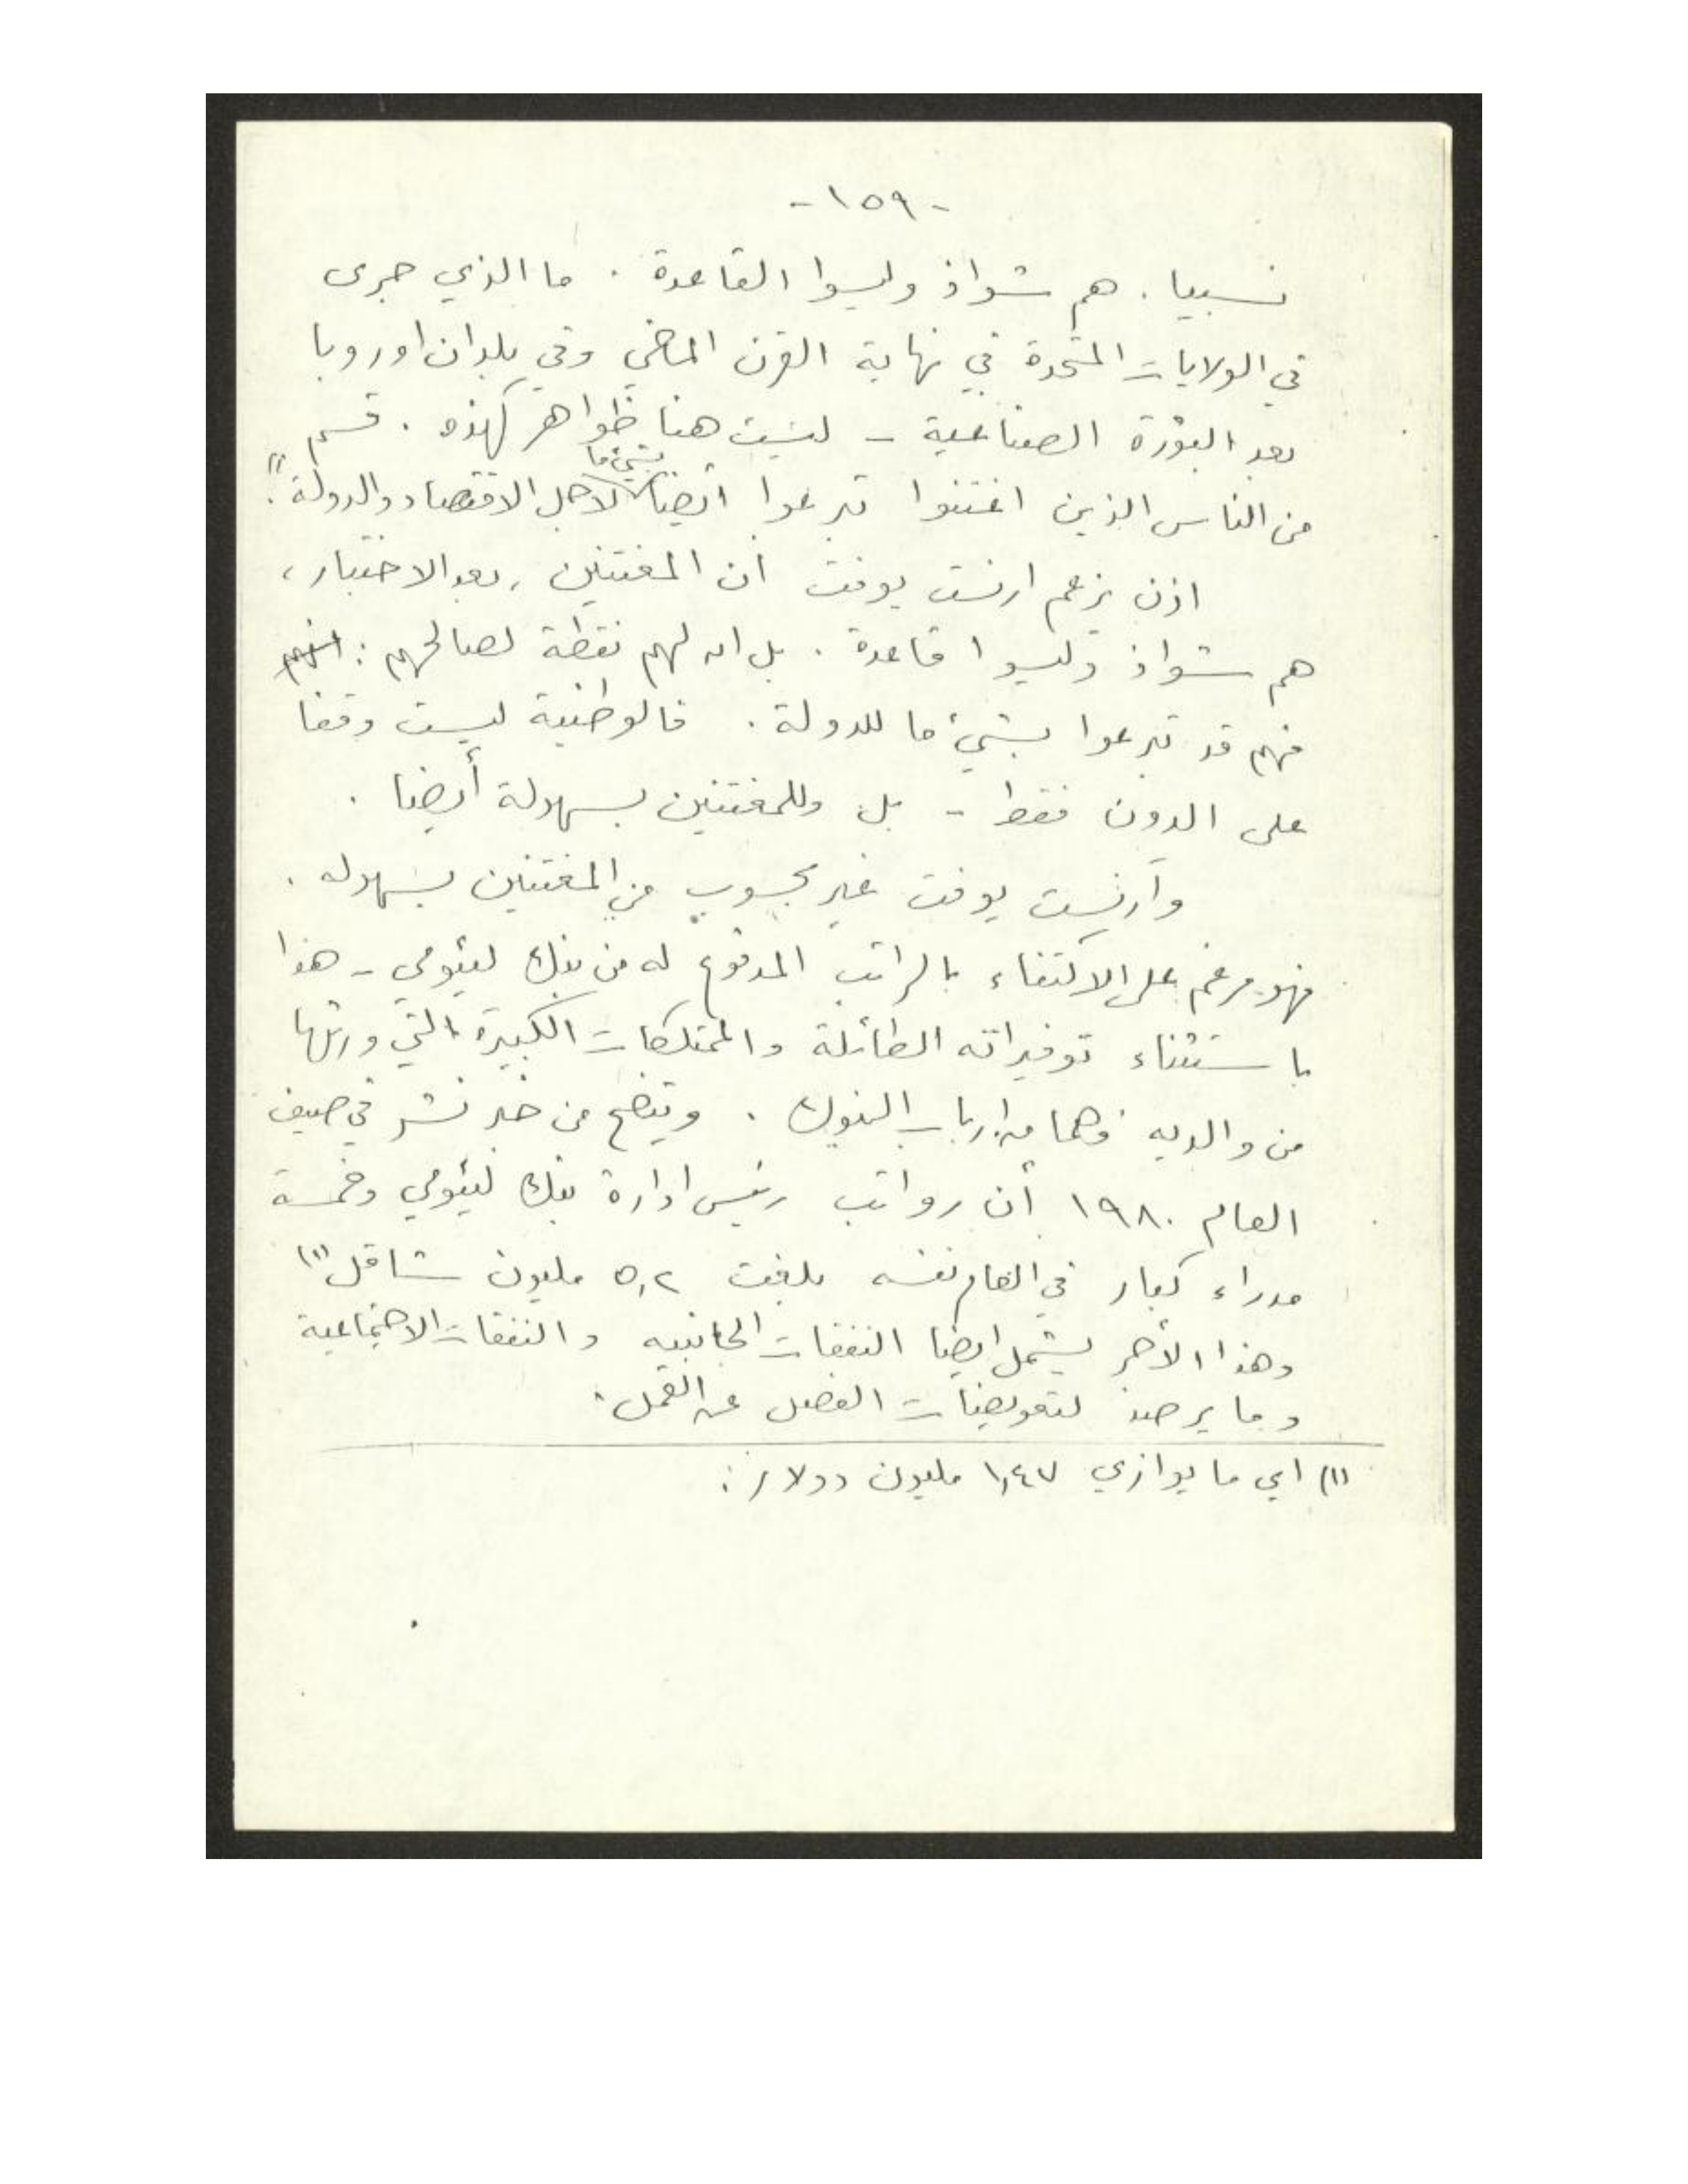 -١٥٩-
نسبيا. هم شواذ وليسوا القاعدة. ما الذي جرى
في الولايات المتحدة في نهاية القرن الماضي وفي بلدان اوروبا
بعد الثورة الصناعية - ليست هنا ظواهر كهذه. قسم
بشيء ما
من الناس الذين اغتنوا تبرعوا ايضا لاجل الاقتصاد والدولة".
اذن يزعم ارنست يوفت ان المغتنين، بعد الاختبار،
هم شواذ وليسوا قاعدة. بل ان لهم نقطة لصالحهم: انهم
فهم قد تبرعوا بشيء ما للدولة. فالوطنية ليست وقفا
على الدون فقط - بل وللمغتنين بسهولة أيضا.
وآرنست يوفت غير محسوب من المغتنين بسهوله.
فهو مرغم على الاكتفاء بالراتب المدفوع له من بنك ليئومي - هذا
باستثناء توفيراته الطائلة والممتلكات الكبيرة التي ورثها
من والديه وهما من ارباب البنوك. ويتضح من خبر نشر في صيف
العام ١٩٨٠ أن رواتب رئيس ادارة بنك ليئومي وخمسة
مدراء كبار في العام نفسه بلغت ٥,٢ مليون شاقل (١)
وهذا الأمر يشمل ايضا النفقات الجانبيه والنفقات الاجتماعية
وما يرصد لتعويضات الفصل عن العمل.
(١) اي ما يوازي ١,٤٧ مليون دولار: